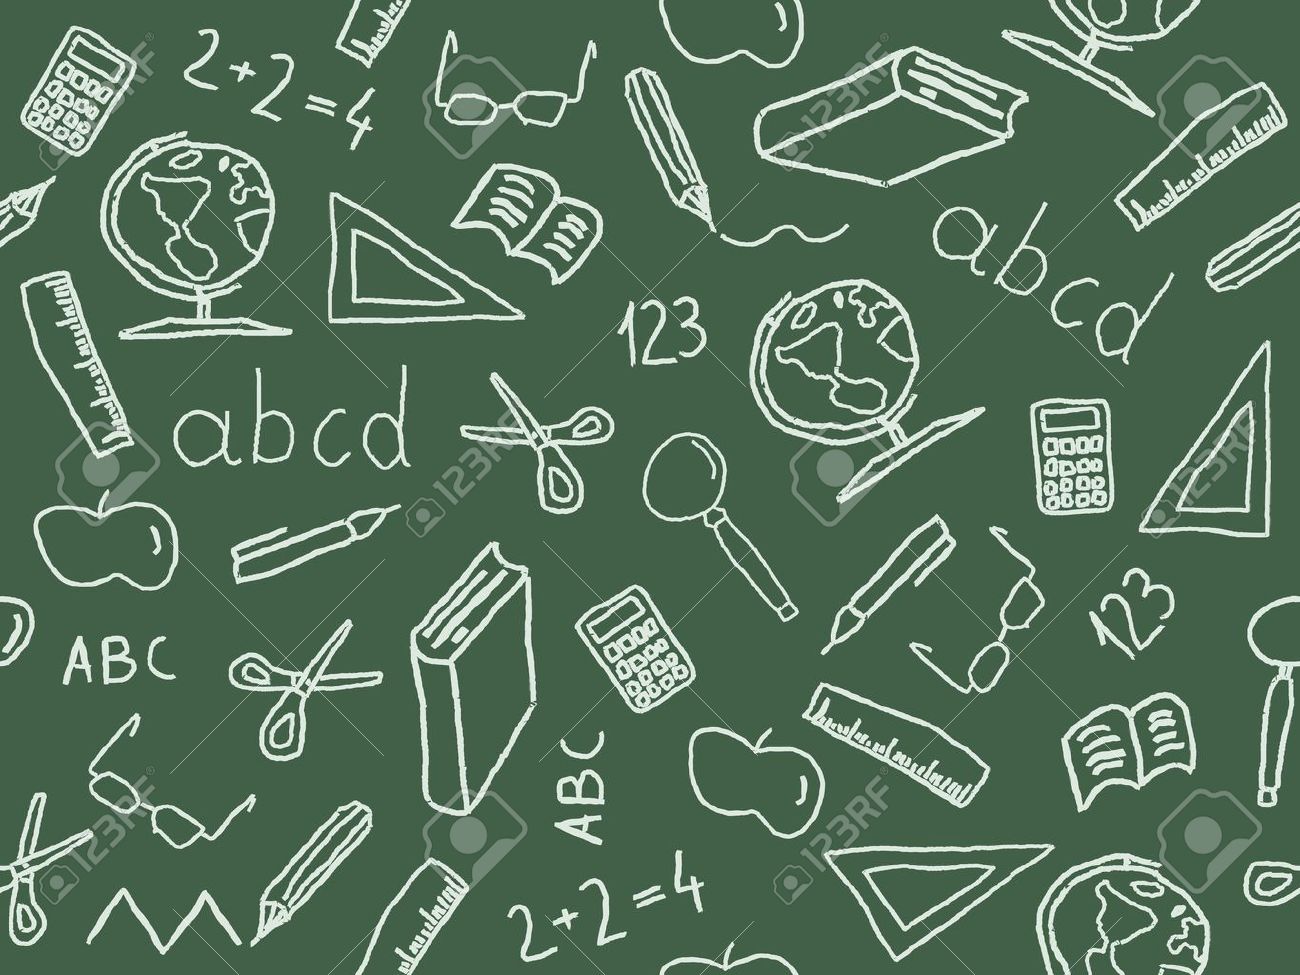 2+2=4
abcd
123
abcd
123
ABC
ABC
2+2=4
123RF
123RF
123RF
123RF
123RF
123RF
123RF
123RF